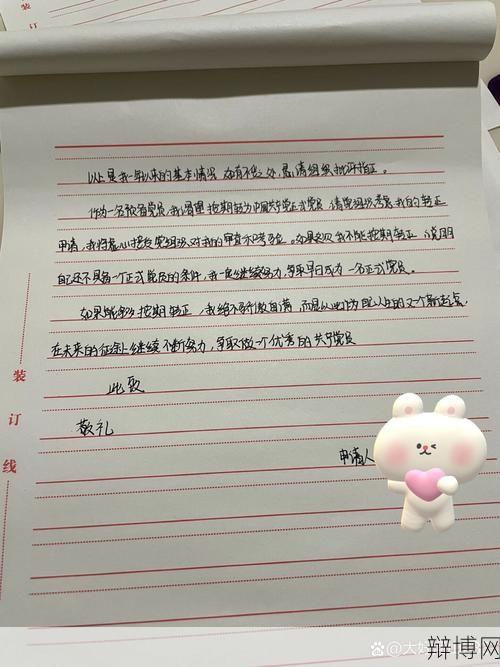 以上是我一年以来的基本情况 如有不妥之处,恳请组织批评指正。
作为一名预备党员,我渴望按期转为中国共产党正式党员,请党组织考虑我的转正
申请,我将虚心接受党组织对我的审查和考验。如果发现我不能按期转正,说明
自己还不具备一个正式党员的条件,我一定继续努力,争取早日成为一名正式党员。
如果能够按期转正,我绝不骄傲自满,而是以此作为自己人生的又一个新起点,
在未来的征途上继续不断努力,争取做一个优秀的共产党员
此致
敬礼
申请人
装
订
线
装
辩博网